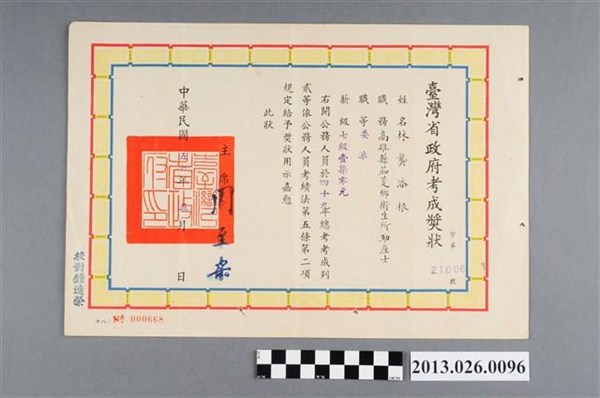 臺灣省政府考成獎狀
字第
21006
號
姓名林龔添根
職務高雄縣茄萣鄉衛生所助產士
職等委派
薪級七級壹柒零元
右開公務人員於四十九年總考考成列
貳等依公務人員考績法第五條第二項
規定給予獎狀用示嘉勉
此狀
主席周至柔
臺灣省政府印
中華民國 年 月 日
校對鍾進榮
No 000668
2013.026.0096